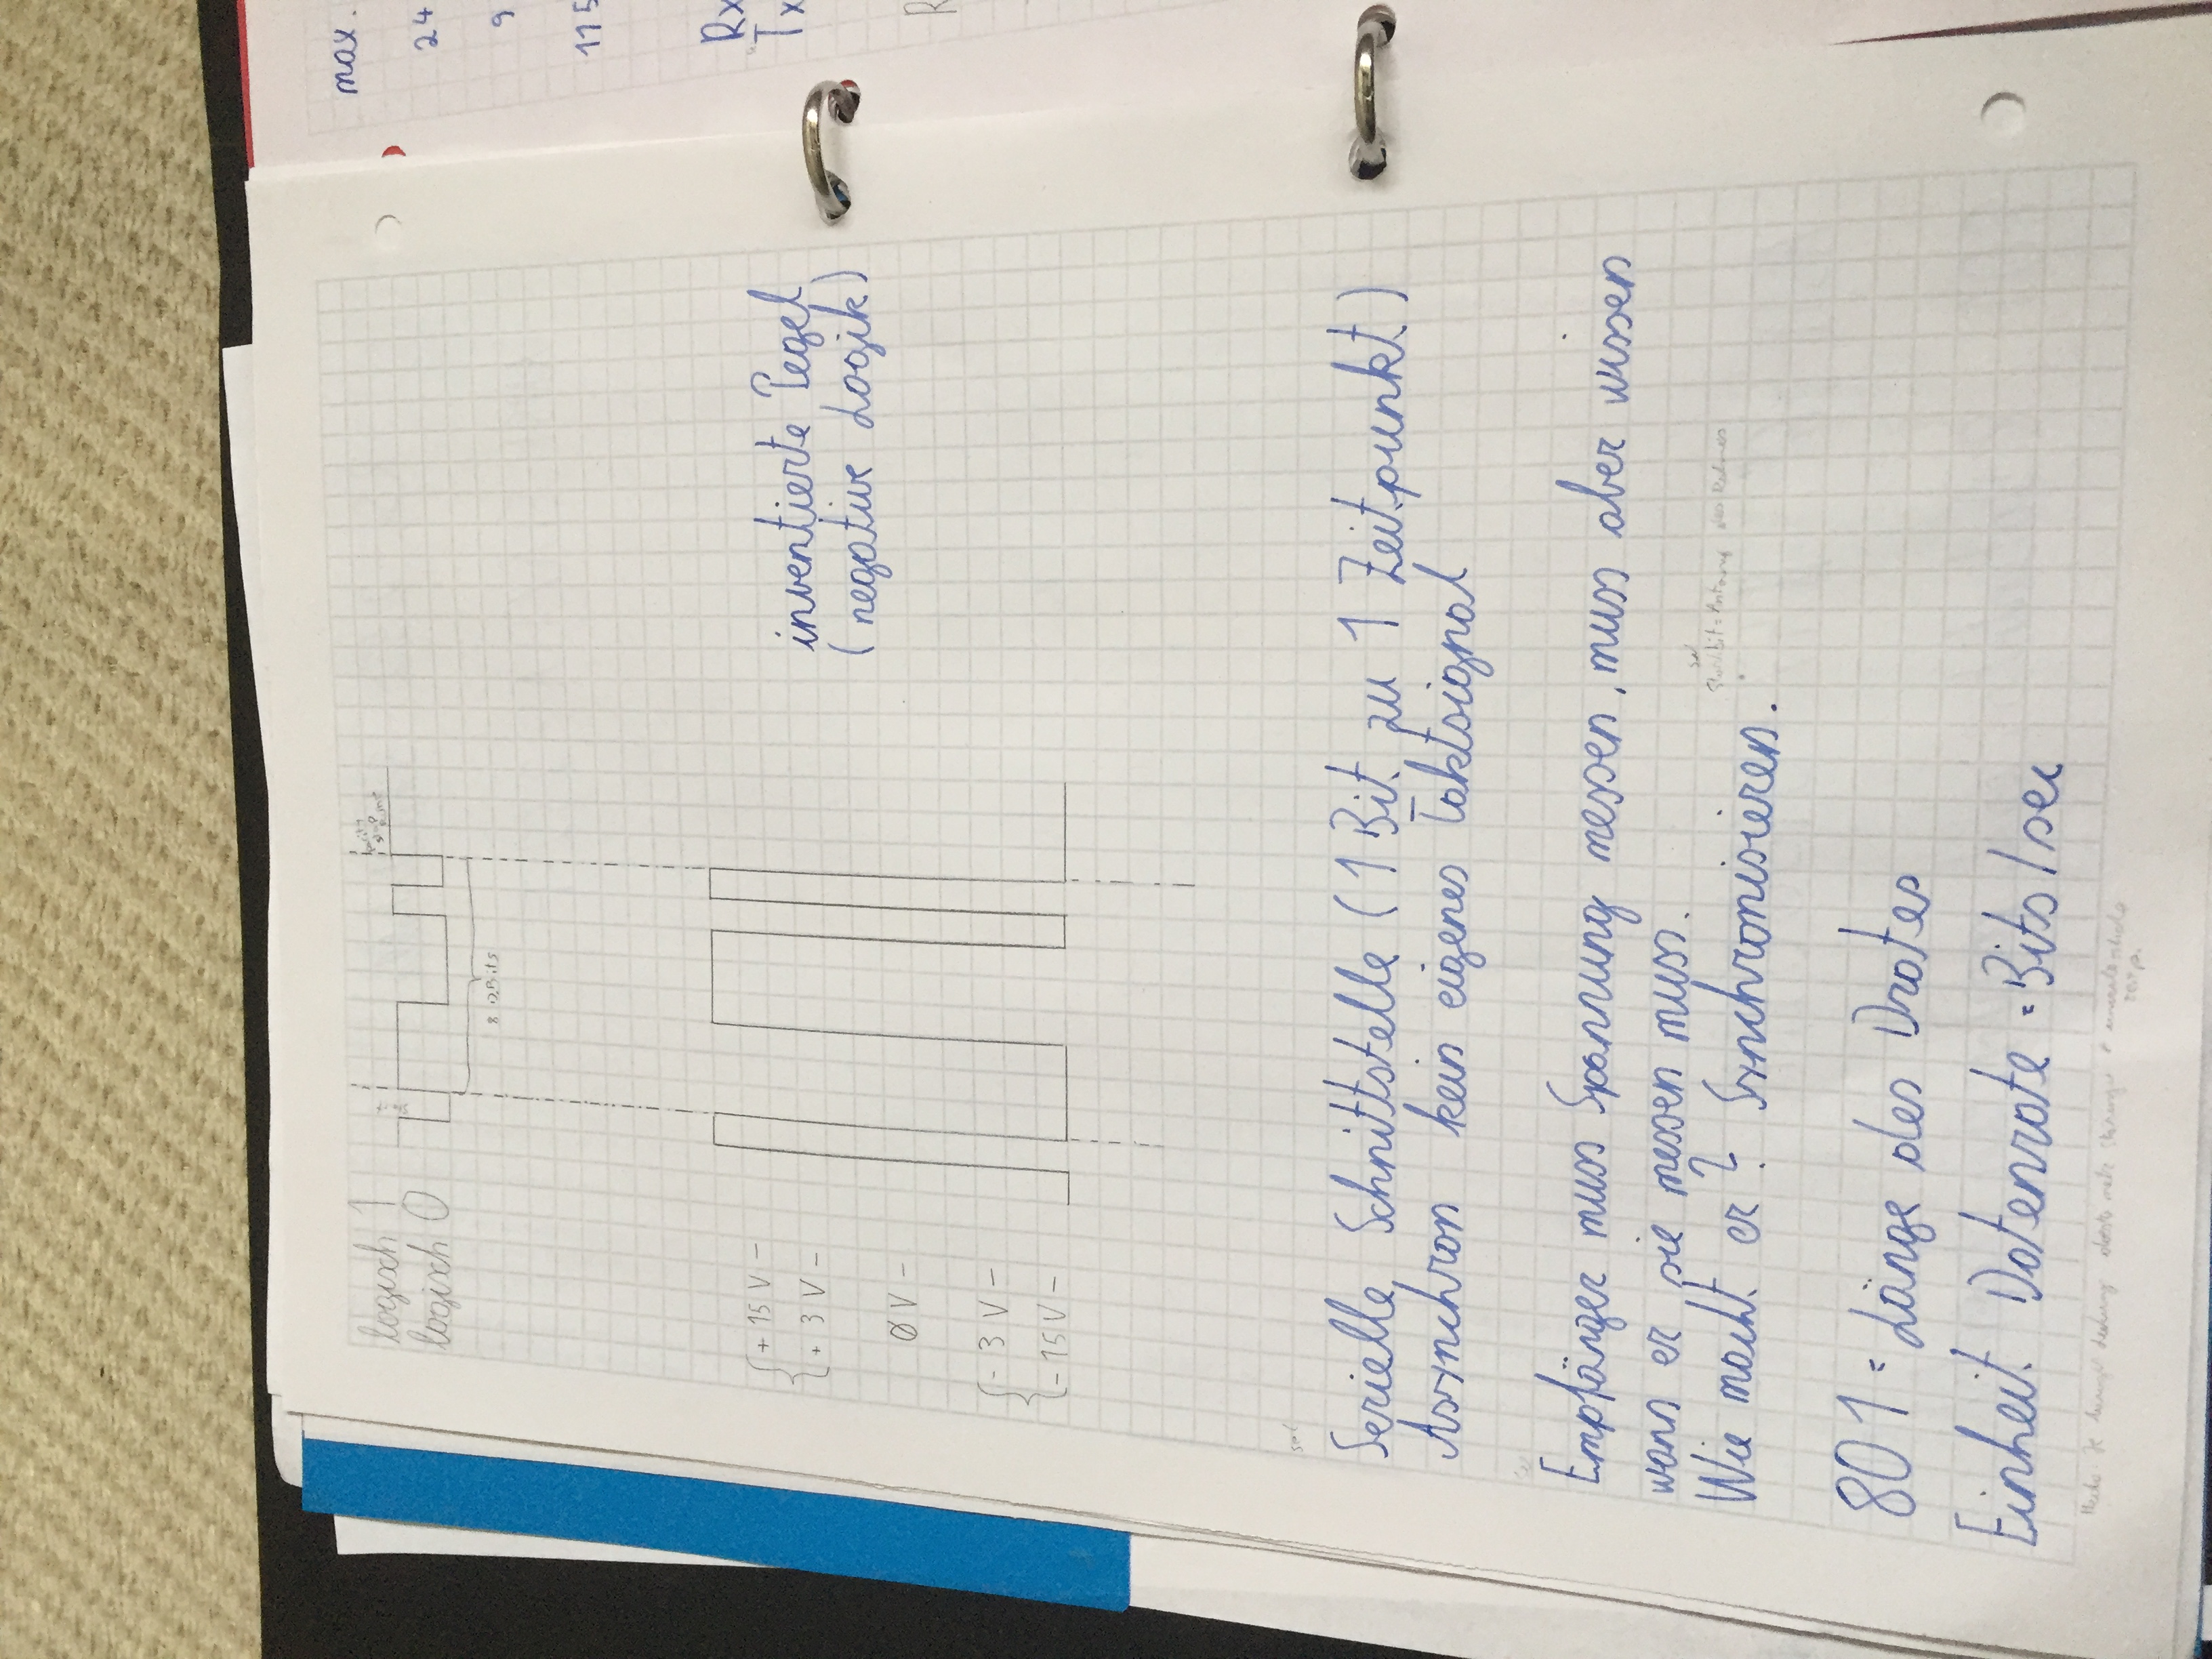 logisch 1
logisch 0
Start
parity
stop
8 D.Bits
+ 15 V -
+ 3 V -
0 V -
- 3 V -
- 15 V -
inventierte Pegel
(negative Logik)
Serielle Schnittstelle (1 Bit zu 1 Zeitpunkt)
Asynchron kein eigenes Taktsignal
Empfänger muss Spannung messen, muss aber wissen
wann er sie messen muss.
Wie macht er? Synchronisieren.
Startbit = Anfang des Rahmes
801 = Länge des Drates
Einheit Datenrate = Bits/sec
max.
24
9
115
Rx
Tx
R